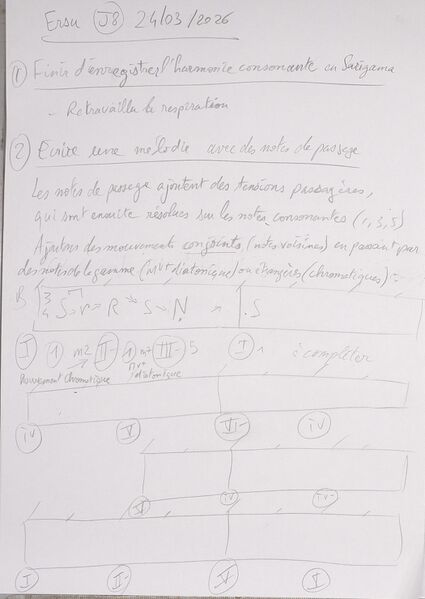 Ersu J8 24/03/2026
1) Finir d'enregistrer l'harmonie consonante en Sarigama
- Retravailler la respiration
2) Ecrire une mélodie avec des notes de passage
Les notes de passage ajoutent des tensions passagères,
qui sont ensuite résolues sur les notes consonantes (1, 3, 5)
Ajoutons des mouvements conjoints (notes voisines) en passant par
des notes de la gamme (mvt diatonique) ou étrangères (chromatiques) :
3 4 S r R S N .S
I 1 m2 II- 1 III- 5 I 1 à compléter
Mouvement chromatique mvt diatonique
IV V VI- IV
V IV IV-
I II- V V